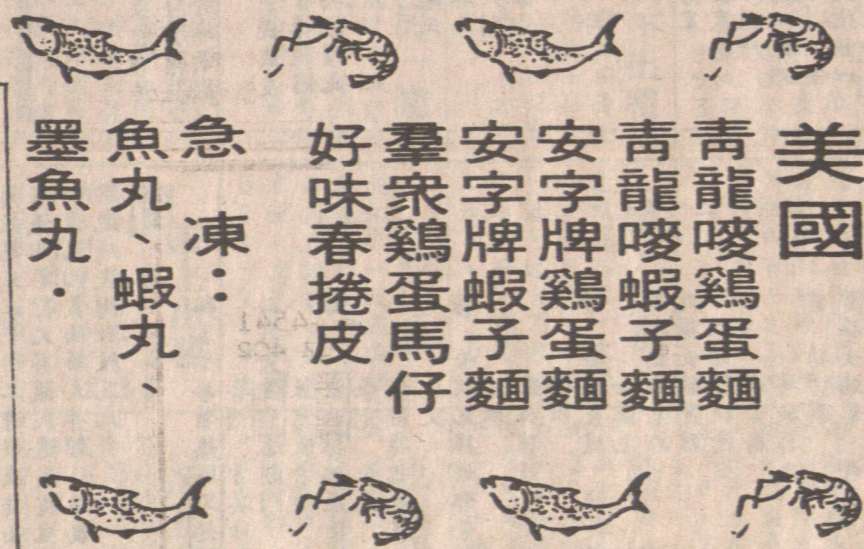 美國
靑龍嘜鷄蛋麵
靑龍嘜蝦子麵
安字牌鷄蛋麵
安字牌蝦子麵
羣衆鷄蛋馬仔
好味春捲皮
急凍：
魚丸、蝦丸、
墨魚丸．